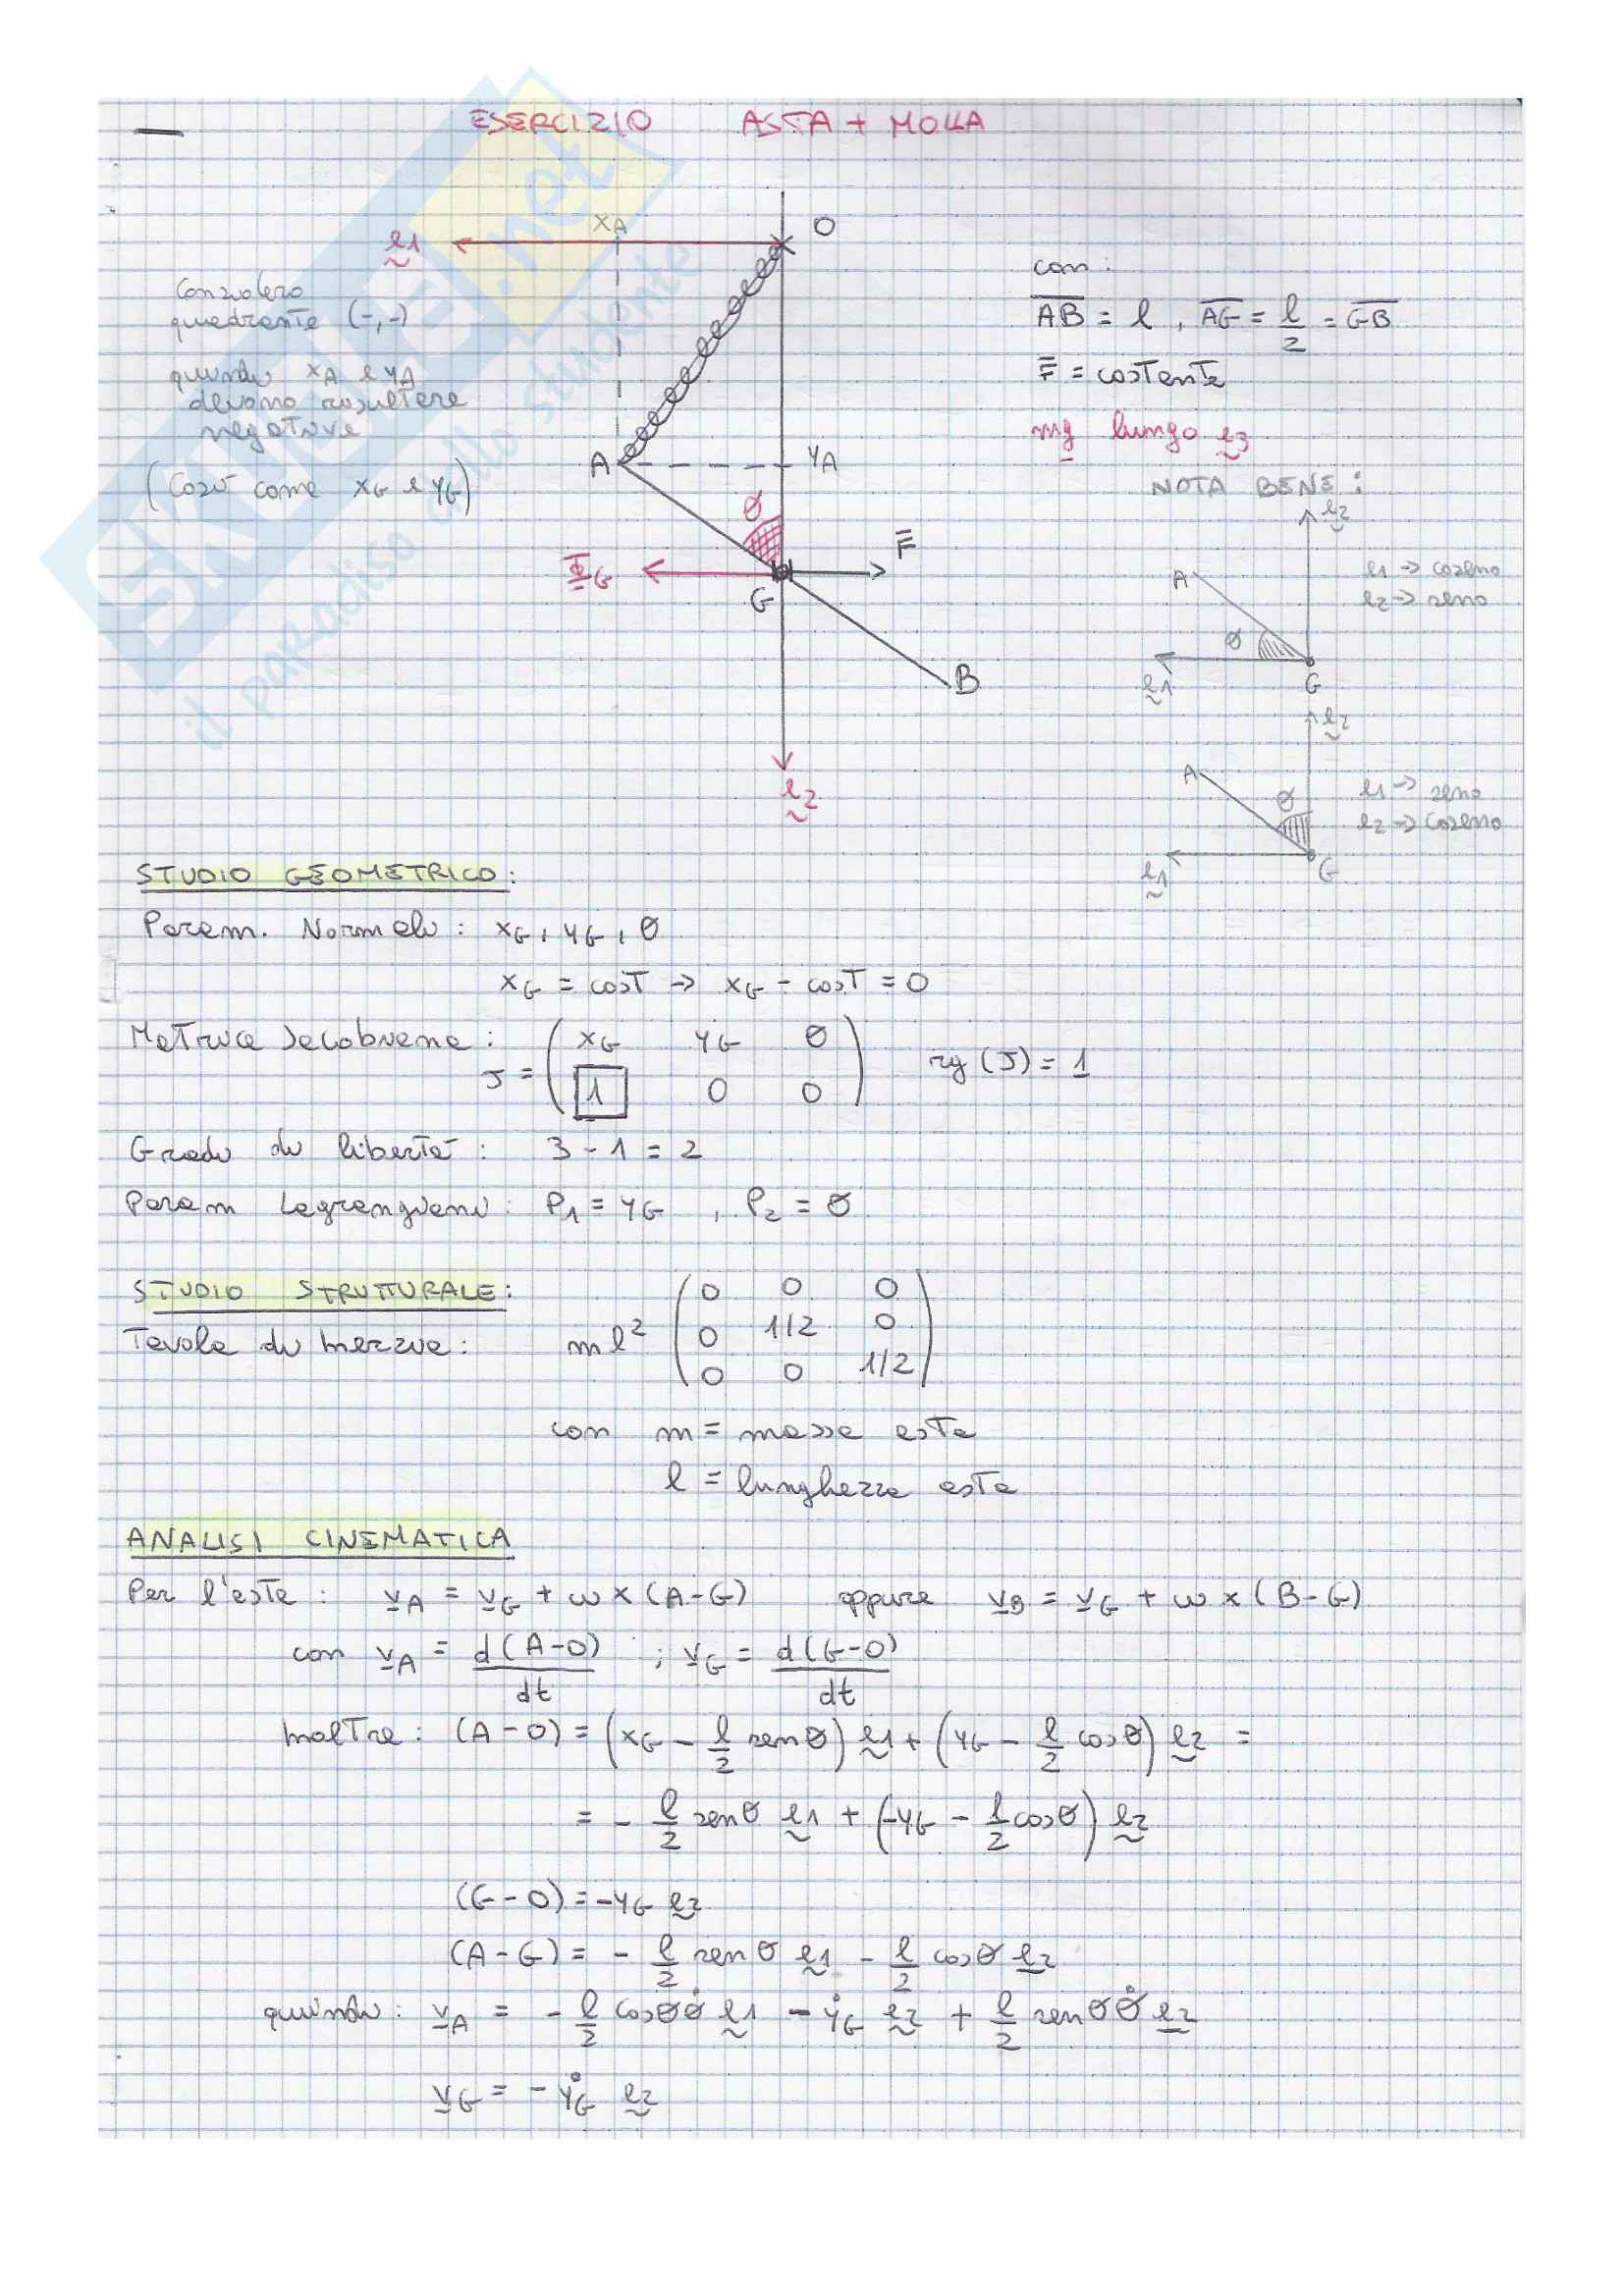 ESERCIZIO ASTA + MOLLA
xA O
e1
Considero
quadrante (-,-)
quindi xA e yA
devono risultare
negative
(Così come xG e yG)
con:
AB = l , AG = l/2 = GB
F = costante
mg lungo e3
NOTA BENE:
A yA
θ
F
ΦG
G
B
e2
e2
A
e1 -> coseno
e2 -> seno
θ
e1 G
e2
A
θ
e1 -> seno
e2 -> coseno
e1 G
STUDIO GEOMETRICO:
Param. Normali: xG, yG, θ
xG = cosT -> xG - cosT = 0
Matrice Jacobiana: J = ( xG yG θ
1 0 0 ) rg (J) = 1
Gradi di libertà: 3 - 1 = 2
Param Lagrangiani: P1 = yG , P2 = θ
STUDIO STRUTTURALE:
Tavola di Inerzia: ml² ( 0 0 0
0 1/2 0
0 0 1/2 )
con m = massa asta
l = lunghezza asta
ANALISI CINEMATICA
Per l'asta: vA = vG + w x (A-G) oppure vB = vG + w x (B-G)
con vA = d(A-O)/dt ; vG = d(G-O)/dt
Inoltre: (A-O) = (xG - l/2 senθ) e1 + (yG - l/2 cosθ) e2 =
= - l/2 senθ e1 + (-yG - l/2 cosθ) e2
(G-O) = -yG e2
(A-G) = - l/2 senθ e1 - l/2 cosθ e2
quindi: vA = - l/2 cosθ θ̇ e1 - ẏG e2 + l/2 senθ θ̇ e2
vG = - ẏG e2
SKUOLA.net
il paradiso dello studente